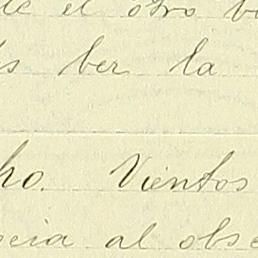 de el otro b
s ber la
ho. Vientos
ocia al obse